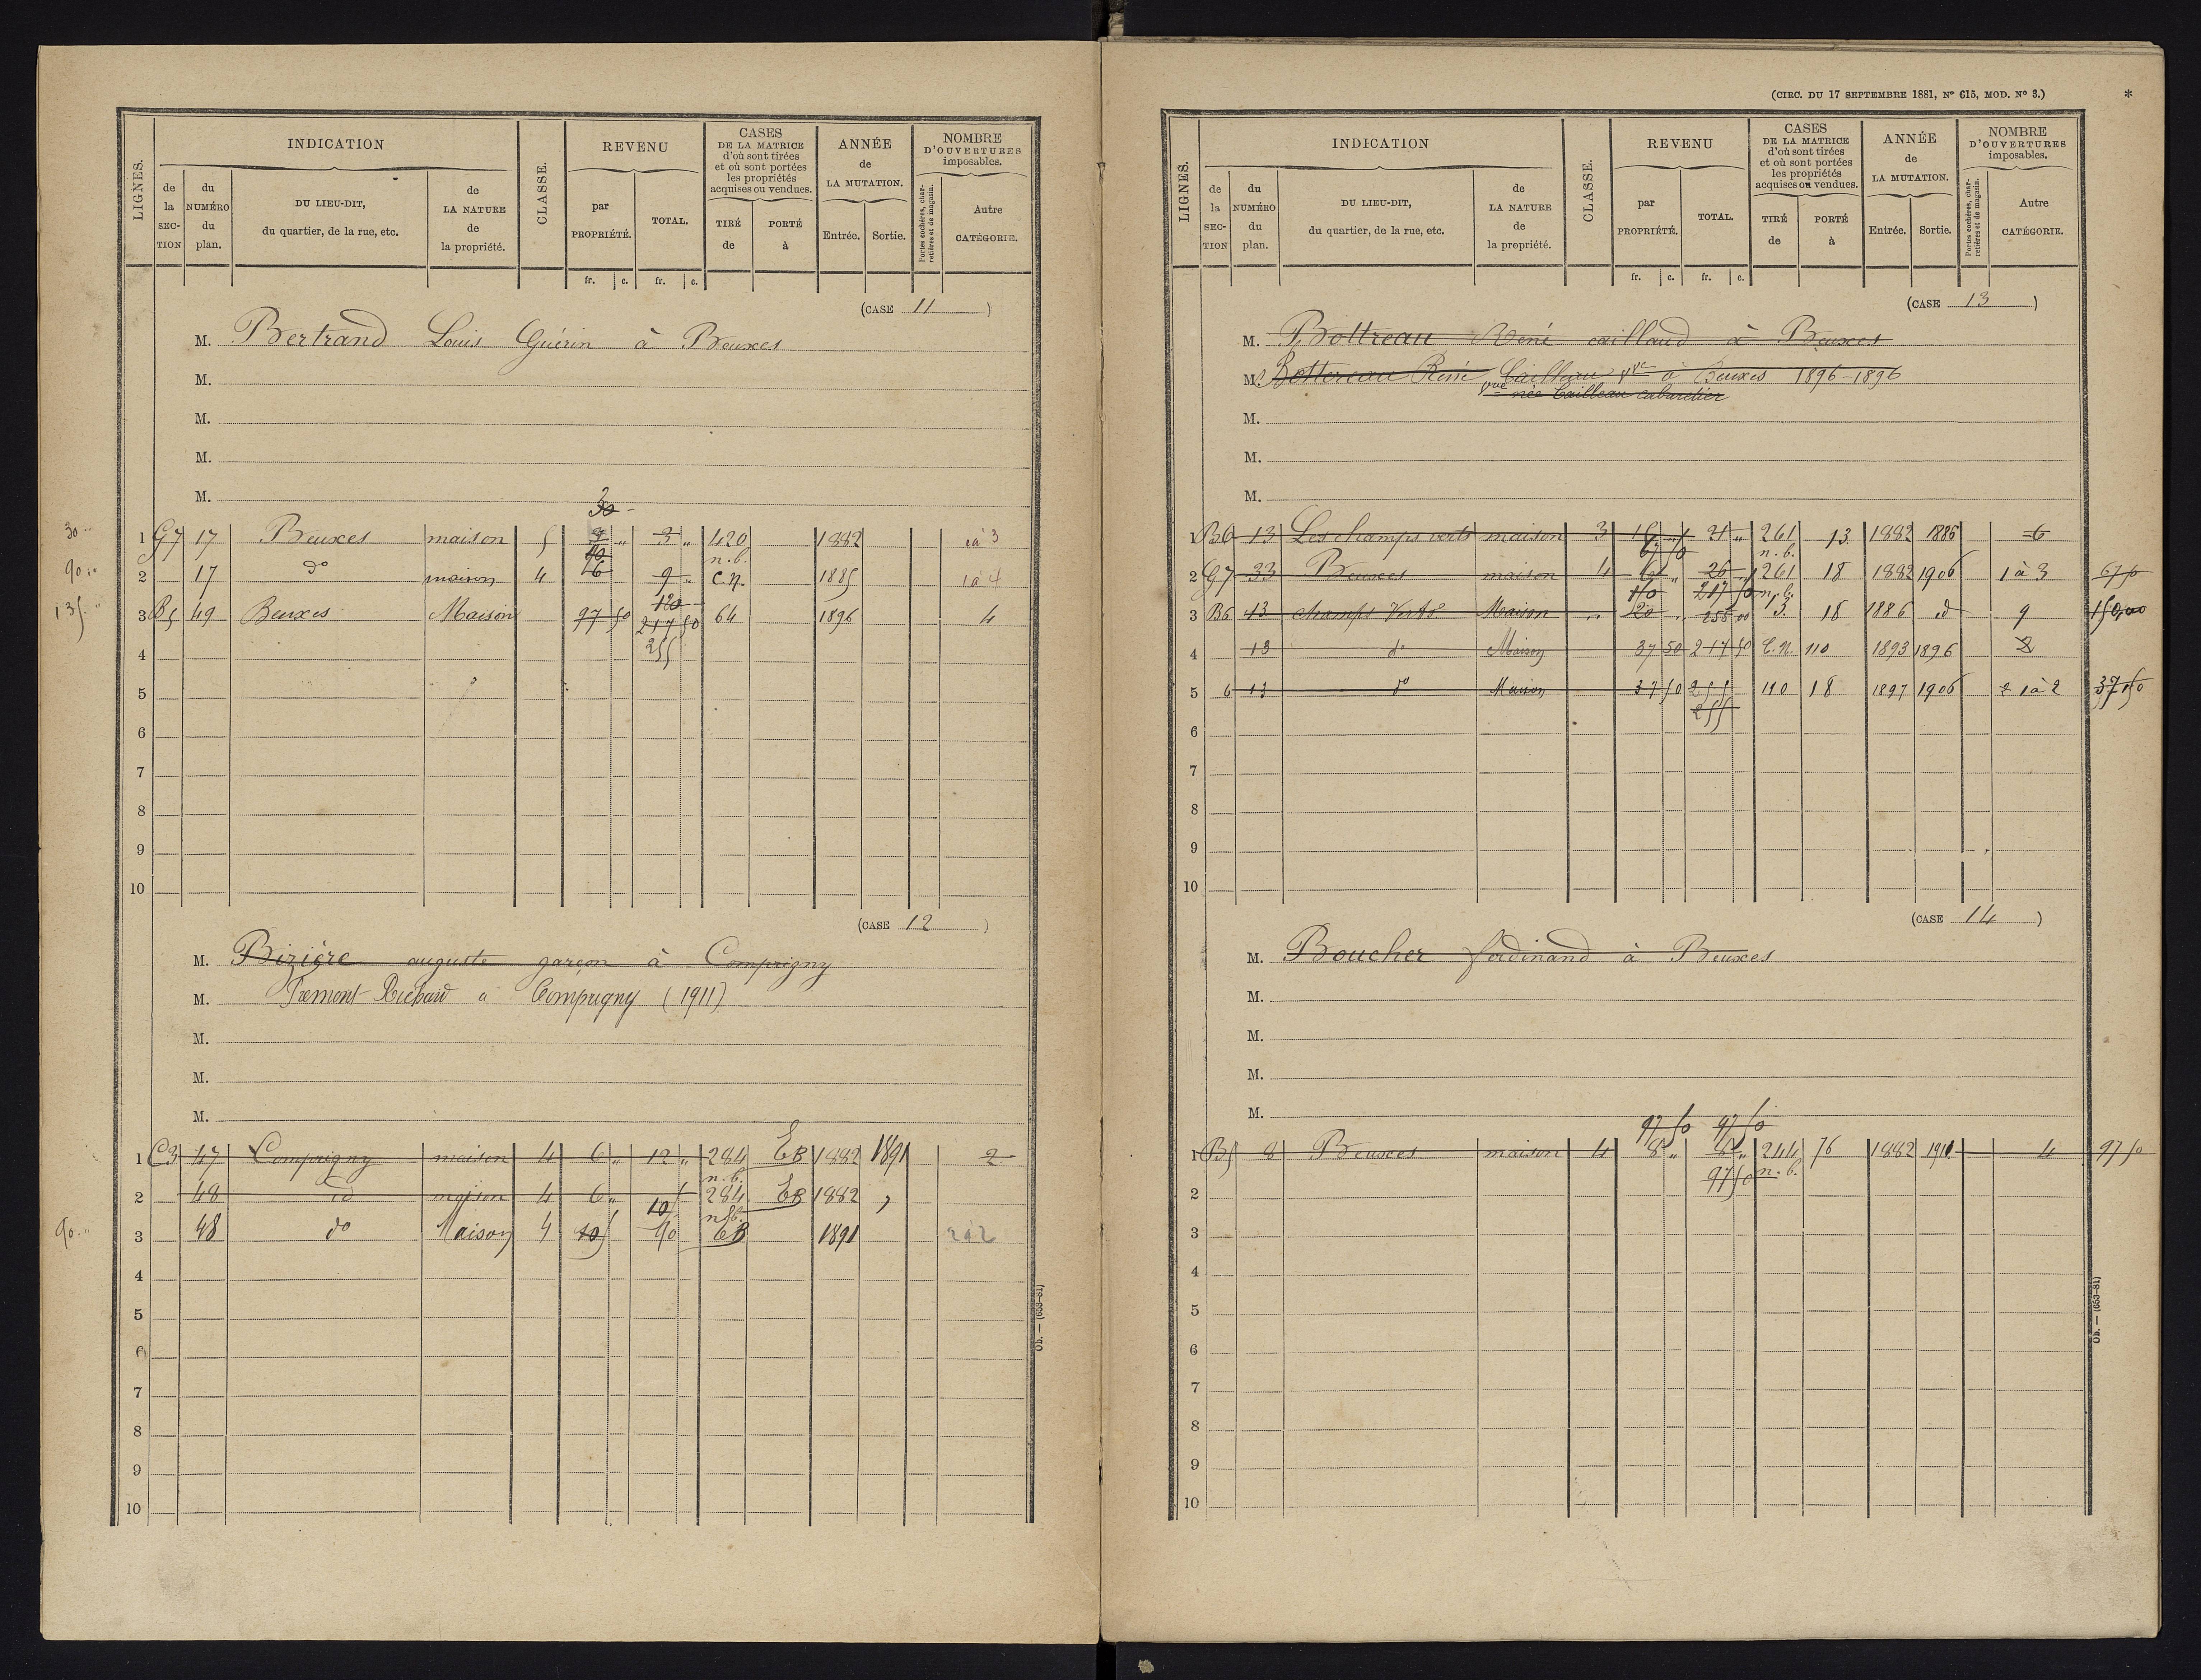 LIGNES.
INDICATION
de la SECTION
du NUMÉRO du plan.
DU LIEU-DIT, du quartier, de la rue, etc.
de LA NATURE de la propriété.
CLASSE.
REVENU
par PROPRIÉTÉ.
TOTAL.
fr. c. fr. c.
CASES DE LA MATRICE d'où sont tirées et où sont portées les propriétés acquises ou vendues.
TIRÉ de
PORTÉ à
ANNÉE de LA MUTATION.
Entrée. Sortie.
NOMBRE D'OUVERTURES imposables.
Portes cochères, charretières et de magasin.
Autre CATÉGORIE.
(CASE 11)
M. Bertrand Louis Guérin à Beuxes
M.
M.
M.
M.
30
30 1 G7 17 Beuxes maison 5 3 " 3 " 420 1882 1à 3
n.b.
90 2 17 do maison 4 6 9 C.N. 1885 1 à 4
120
135 3 B5 49 Beuxes Maison 97 50 217 50 64 1896 4
4 255
5
6
7
8
9
10
(CASE 12)
M. Bizière auguste garçon à Comprigny
M. Richard à Comprigny (1911)
M.
M.
M.
1 C3 47 Comprigny maison 4 6 " 12 " 284 EB 1882 1891 2
n.b.
2 48 id maison 4 6 " 284 EB 1882
n.b.
90 3 48 do Maison 4 1891 2à2
4
5
6
7
8
9
10
Ob. — (653-81)
(CIRC. DU 17 SEPTEMBRE 1881, No 615, MOD. No 3.) *
LIGNES.
INDICATION
de la SECTION
du NUMÉRO du plan.
DU LIEU-DIT, du quartier, de la rue, etc.
de LA NATURE de la propriété.
CLASSE.
REVENU
par PROPRIÉTÉ.
TOTAL.
fr. c. fr. c.
CASES DE LA MATRICE d'où sont tirées et où sont portées les propriétés acquises ou vendues.
TIRÉ de
PORTÉ à
ANNÉE de LA MUTATION.
Entrée. Sortie.
NOMBRE D'OUVERTURES imposables.
Portes cochères, charretières et de magasin.
Autre CATÉGORIE.
(CASE 13)
M. Bottreau René caillaud à Beuxes
M. Bottereau René Cailleau Vve à Beuxes 1896-1896
vve née Cailleau cabaretier
M.
M.
M.
1 B6 13 Les champs verts maison 3 21 " 261 13 1882 1886 6
67 50 n.b.
2 G7 33 Beuxes maison 4 26 " 261 18 1882 1906 1 à 3 67 50
217 50 n.b.
3 B6 13 champs Verts Maison 120 255 00 3. 18 1886 d 9 150,00
4 13 do Maison 37 50 217 50 C.N. 110 1893 1896 2
5 6 13 do Maison 37 50 255 110 18 1897 1906 2 1à2 37,50
255
6
7
8
9
10
(CASE 14)
M. Boucher ferdinand à Beuxes
M.
M.
M.
M.
97 50 97 50
1 B5 8 Beuxes maison 4 8 " 8 " 244 76 1882 1911 4 97 50
97 50 n.b.
2
3
4
5
6
7
8
9
10
Ob. — (653-81)